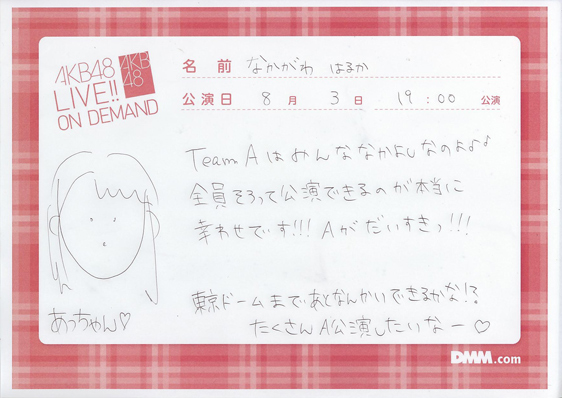 AKB48
LIVE!!
ON DEMAND
AKB
48
名前 なかがわ はるか
公演日 8月 3日 19:00 公演
Team Aはみんななかよしなのよよ♪
全員そろって公演できるのが本当に
幸わせでぃす!!! Aがだいすきっ!!!
東京ドームまであとなんかいできるかな!?
たくさんA公演したいなー♡
あっちゃん♡
DMM.com